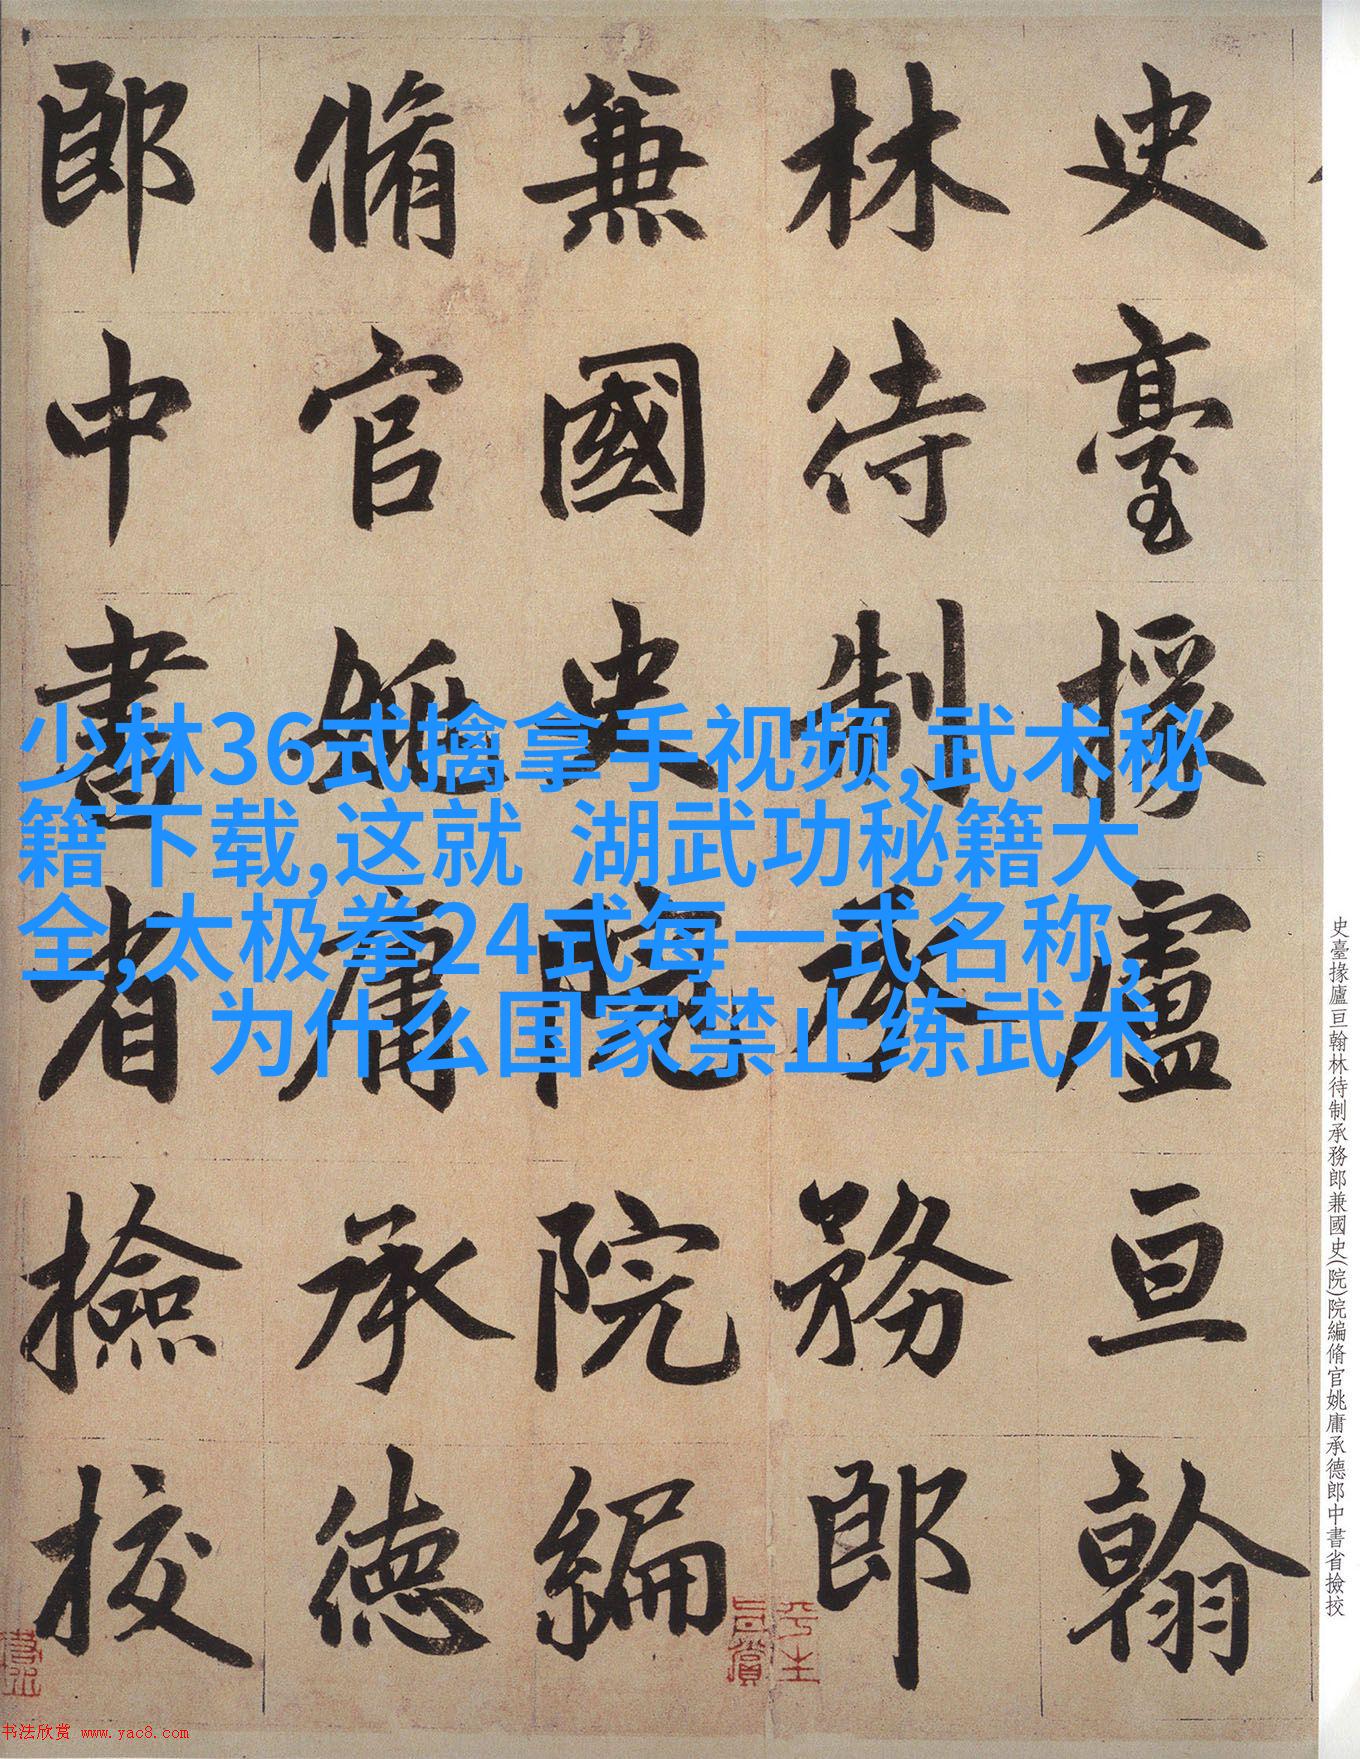 史臺掾廬亘翰
林待制承務郎
兼國史院院編
脩官姚庸承德
郎中書省撿挍
少林36式擒拿手视频,武术秘
籍下载,这就 湖武功秘籍大
全,太极拳24式每一式名称,
为什么国家禁止练武术
史臺掾廬亘翰林待制承務郎兼國史(院)院編脩官姚庸承德郎中書省撿挍
书法欣赏 www.yac8.com